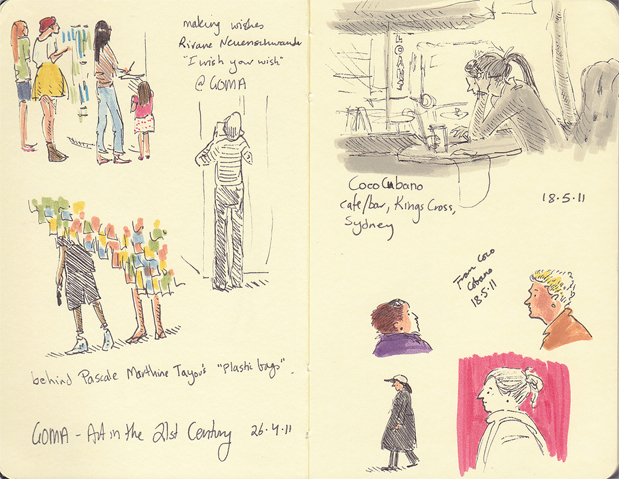 making wishes
Rivane Neuenschwander
"I wish your wish"
@ GOMA
behind Pascale Marthine Tayou's "plastic bags".
GOMA - Art in the 21st Century 26.4.11
Coco Cubano
cafe/bar, Kings Cross,
Sydney
18.5.11
From Coco
Cubano
18.5.11